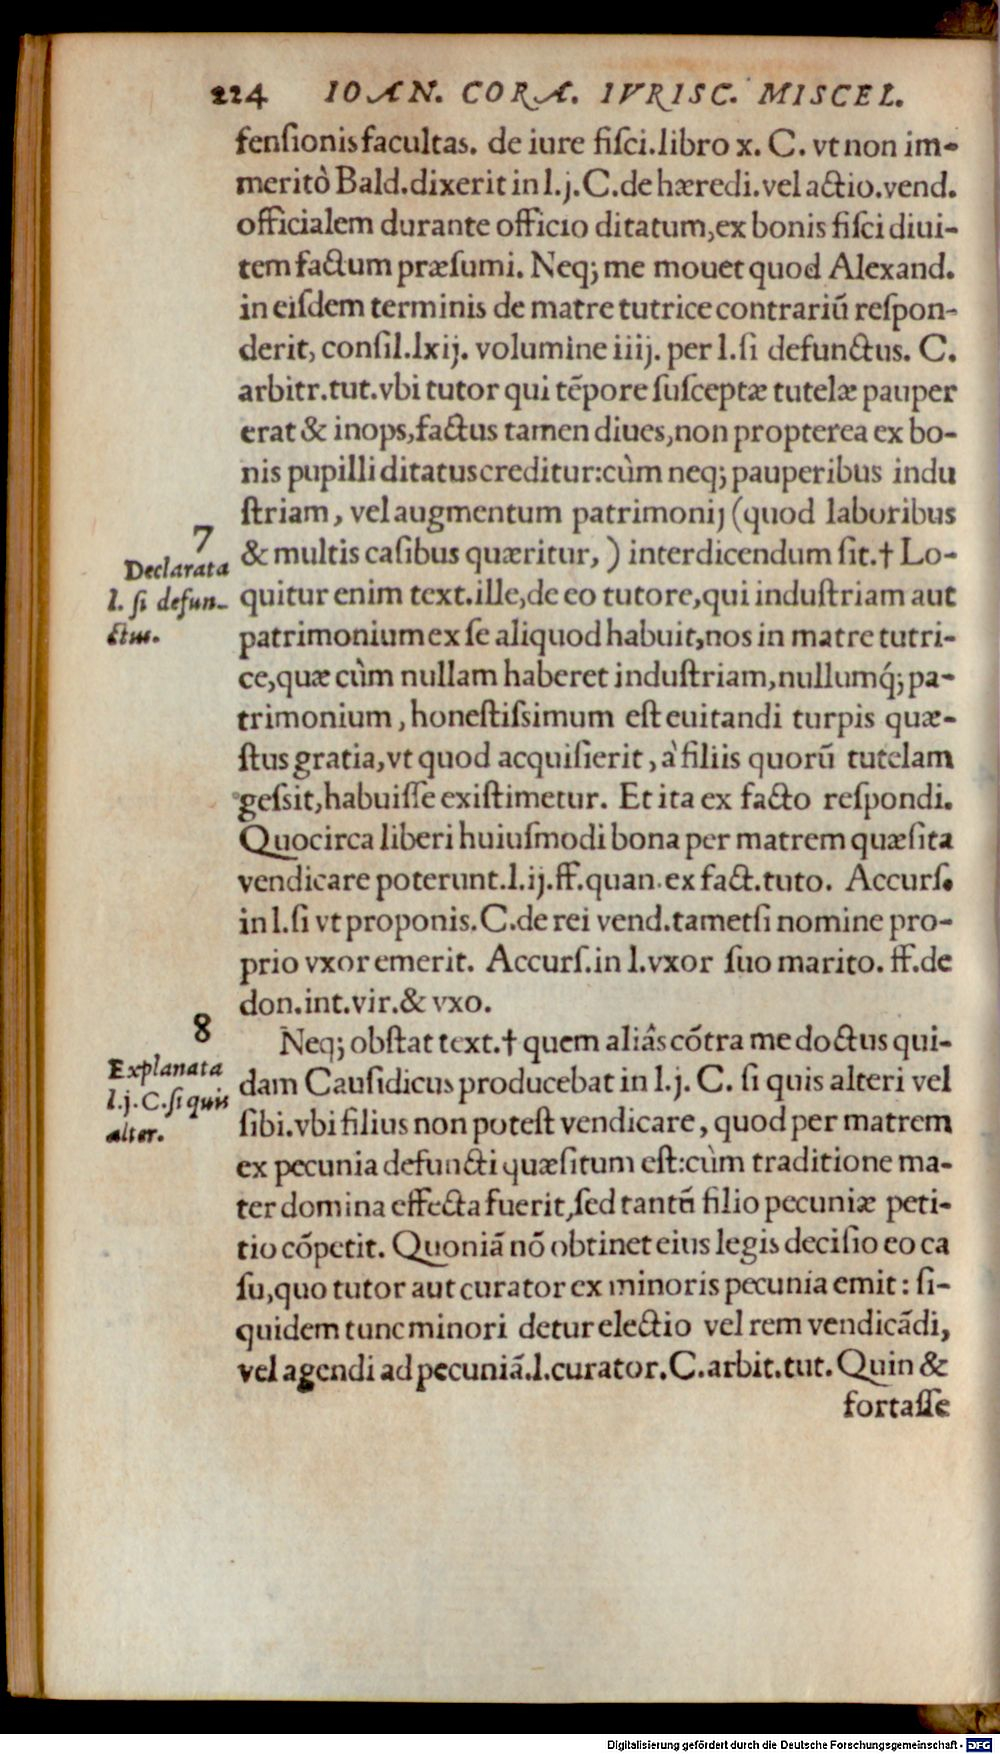 224 IOAN. CORA. IVRISC. MISCEL.
fenſionis facultas. de iure fiſci. libro x. C. vt non im-
meritò Bald. dixerit in l. j. C. de hæredi. vel actio. vend.
officialem durante officio ditatum, ex bonis fiſci diui-
tem factum præſumi. Neq; me mouet quod Alexand.
in eiſdem terminis de matre tutrice contrariũ reſpon-
derit, conſil. lxij. volumine iiij. per l. ſi defunctus. C.
arbitr. tut. vbi tutor qui tẽpore ſuſceptæ tutelæ pauper
erat & inops, factus tamen diues, non propterea ex bo-
nis pupilli ditatus creditur: cùm neq; pauperibus indu
ſtriam, vel augmentum patrimonij (quod laboribus
7
& multis caſibus quæritur, ) interdicendum ſit. † Lo-
Declarata
l. ſi defun-
ctus.
quitur enim text. ille, de eo tutore, qui induſtriam aut
patrimonium ex ſe aliquod habuit, nos in matre tutri-
ce, quæ cùm nullam haberet induſtriam, nullumq́; pa-
trimonium, honeſtiſsimum eſt euitandi turpis quæ-
ſtus gratia, vt quod acquiſierit, à filiis quorũ tutelam
geſsit, habuiſſe exiſtimetur. Et ita ex facto reſpondi.
Quocirca liberi huiuſmodi bona per matrem quæſita
vendicare poterunt. l. ij. ff. quan. ex fact. tuto. Accurſ.
in l. ſi vt proponis. C. de rei vend. tametſi nomine pro-
prio vxor emerit. Accurſ. in l. vxor ſuo marito. ff. de
don. int. vir. & vxo.
8
Neq; obſtat text. † quem aliâs cõtra me doctus qui-
Explanata
l. j. C. ſi quis
alter.
dam Cauſidicus producebat in l. j. C. ſi quis alteri vel
ſibi. vbi filius non poteſt vendicare, quod per matrem
ex pecunia defuncti quæſitum eſt: cùm traditione ma-
ter domina effecta fuerit, ſed tantũ filio pecuniæ peti-
tio cõpetit. Quoniã nõ obtinet eius legis deciſio eo ca
ſu, quo tutor aut curator ex minoris pecunia emit: ſi-
quidem tunc minori detur electio vel rem vendicãdi,
vel agendi ad pecuniã. l. curator. C. arbit. tut. Quin &
fortaſſe
Digitalisierung gefördert durch die Deutsche Forschungsgemeinschaft - DFG